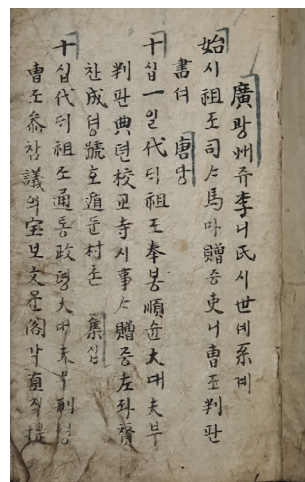 廣광州쥬李니氏시世셰系계
始시祖조司ᄉᆞ馬마贈증吏니曹조判판
書셔 唐당
十십一일代ᄃᆡ祖조奉봉順슌大대夫부
判판典뎐校교寺시事ᄉᆞ贈증左좌贊
찬成셩號호遁둔村촌 集집
十십代ᄃᆡ祖조通통政졍大대夫부刑형
曹조參참議의宝보文문閣각直직提